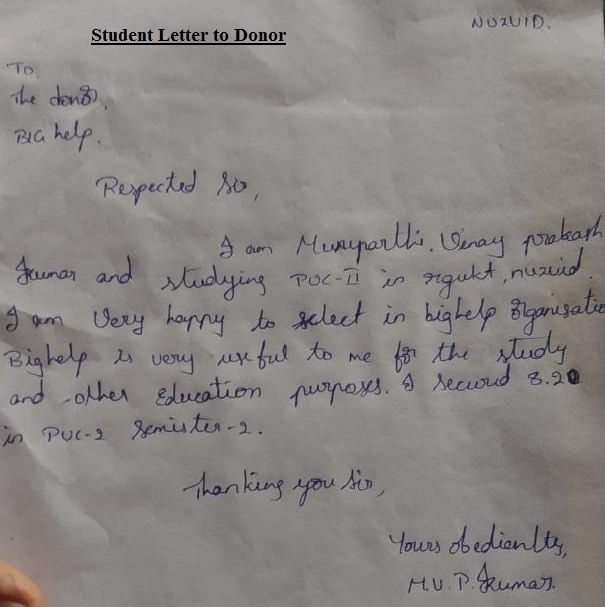 NUZVID.
Student Letter to Donor
To,
The donor,
BIG help.
Respected Sir,
I am Munuparthi. Vinay prakash
Kumar and studying PUC-II in rgukt, nuzvid.
I am Very happy to select in bighelp Organisatio
Bighelp is very useful to me for the study
and other Education purposes. I secured 8.20
in PUC-2 Semister-2.
Thanking you Sir,
Yours obediantly,
M.V.P. Kumar.